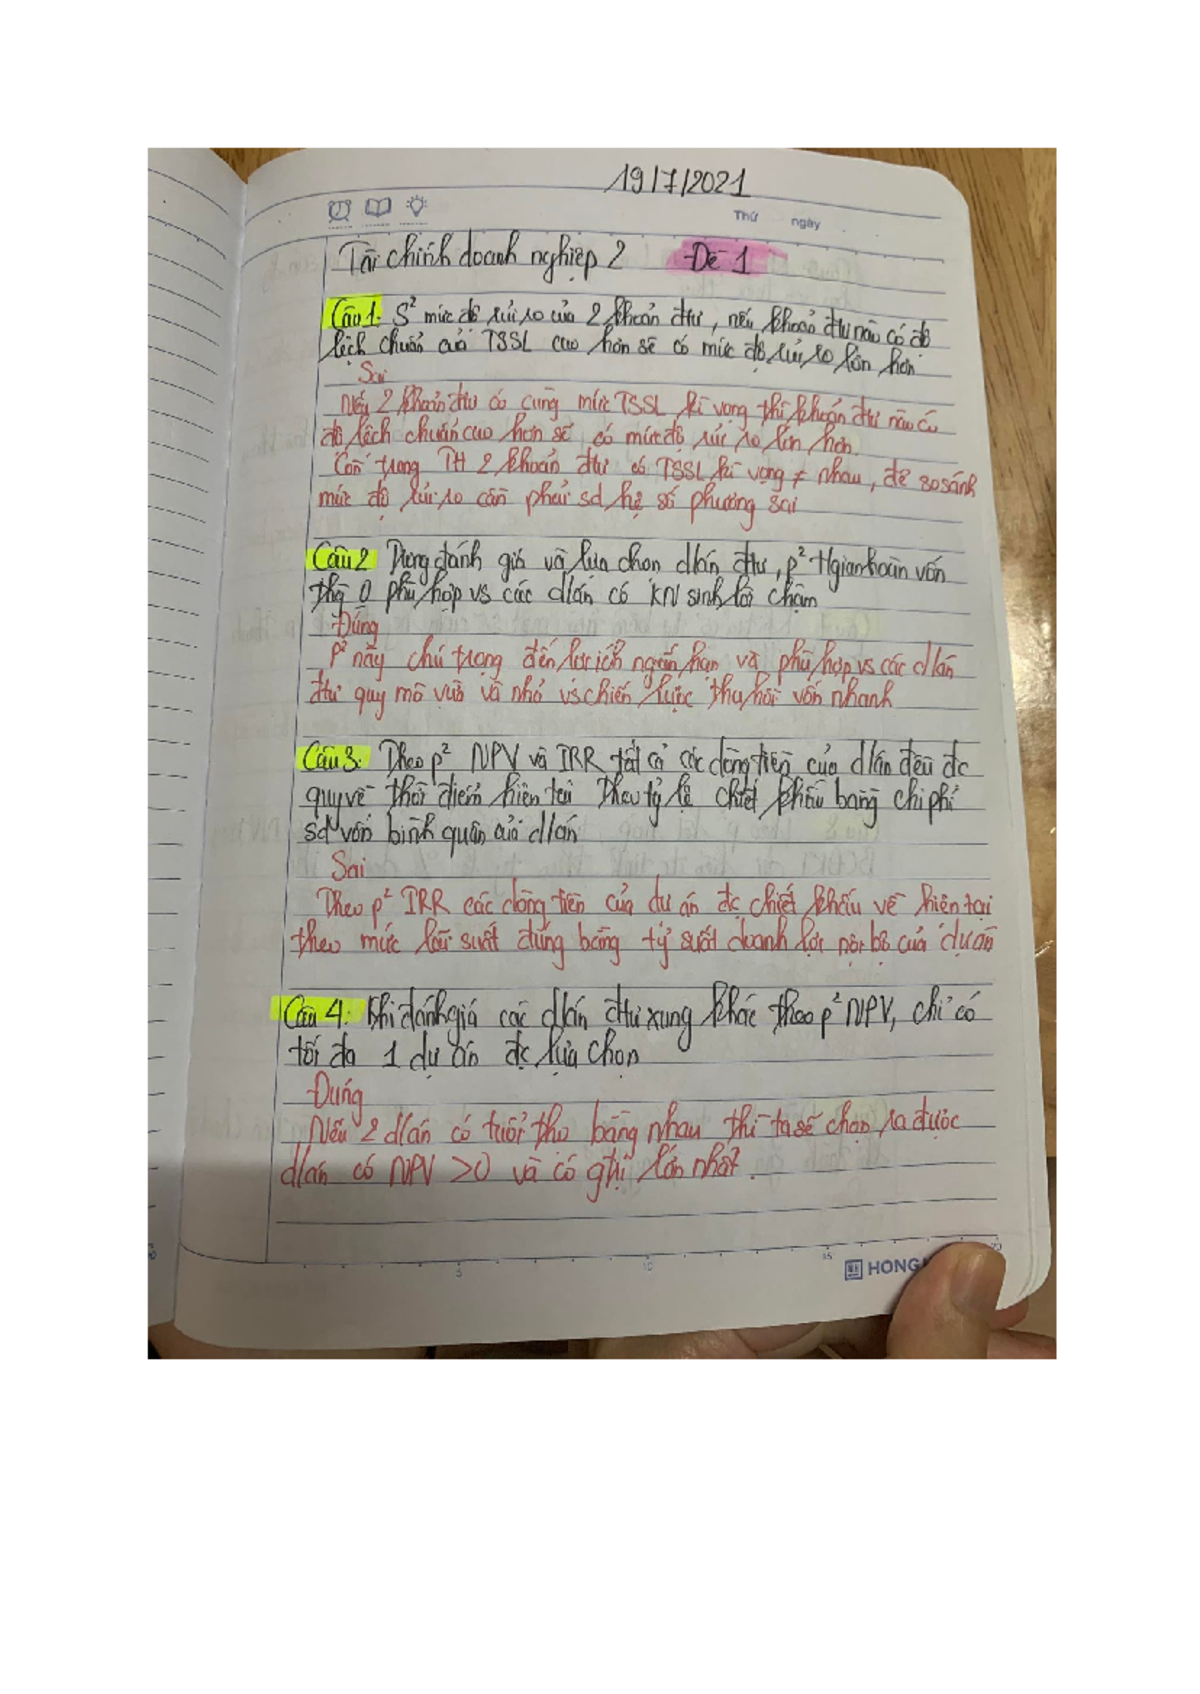 19/7/2021
Thứ ngày
Tài chính doanh nghiệp 2 Đề 1
Câu 1: S² mức độ rủi ro của 2 khoản đtư, nếu khoản đtư nào có độ
lệch chuẩn của TSSL cao hơn sẽ có mức độ rủi ro lớn hơn
Sai
Nếu 2 khoản đtư có cùng mức TSSL kì vọng thì khoản đtư nào có
độ lệch chuẩn cao hơn sẽ có mức độ rủi ro lớn hơn.
Còn trong TH 2 khoản đtư có TSSL kì vọng ≠ nhau, để so sánh
mức độ rủi ro cần phải sd hệ số phương sai
Câu 2 Trong đánh giá và lựa chọn dán đtư, p² tgian hoàn vốn
thg 0 phù hợp vs các dán có KN sinh lời chậm
Đúng
P² này chú trọng đến lợi ích ngắn hạn và phù hợp vs các dán
đtư quy mô vừa và nhỏ vs chiến lược thu hồi vốn nhanh
Câu 3. Theo p² NPV và IRR tất cả các dòng tiền của dán đều đc
quy về thời điểm hiện tại theo tỷ lệ chiết khấu bằng chi phí
sd vốn bình quân của dán
Sai
Theo p² IRR các dòng tiền của dự án đc chiết khấu về hiện tại
theo mức lãi suất đúng bằng tỷ suất doanh lợi nội bộ của dự án
Câu 4: Khi đánh giá các dán đtư xung khắc theo p² NPV, chỉ có
tối đa 1 dự án đc lựa chọn
Đúng
Nếu 2 dán có tuổi thọ bằng nhau thì ta sẽ chọn ra được
dán có NPV >0 và có ghị lớn nhất.
5 10 15 20